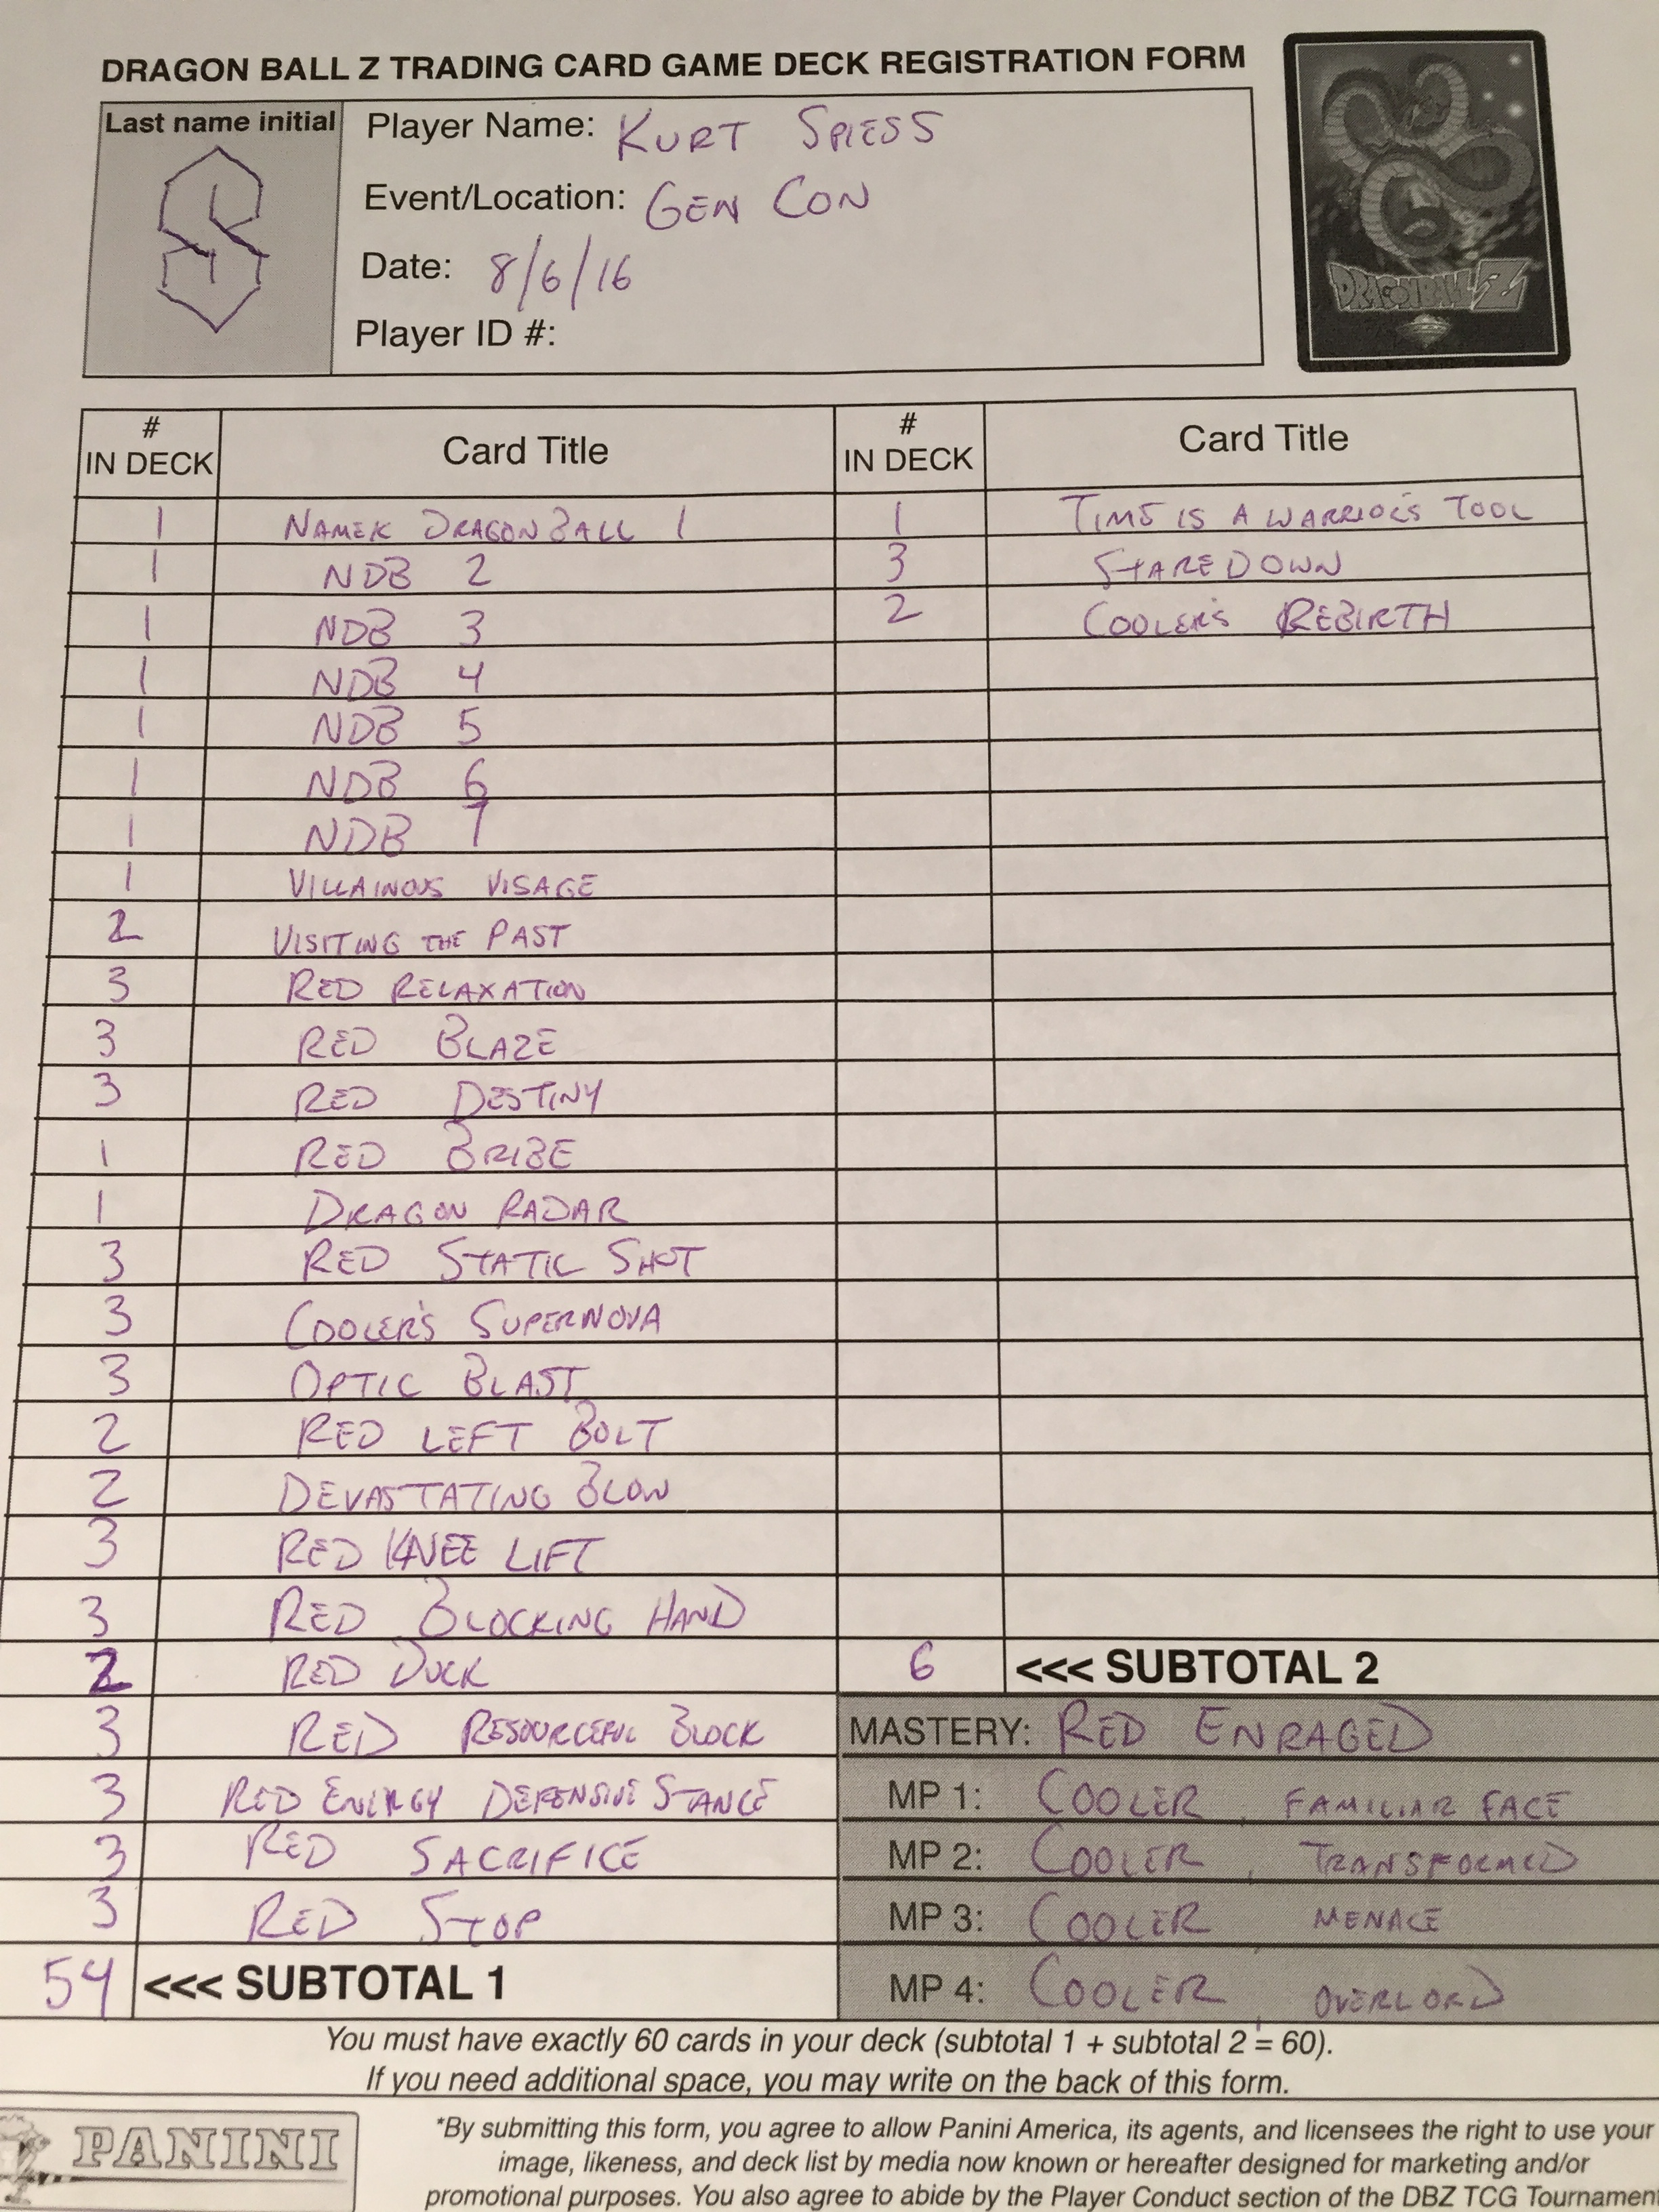 DRAGON BALL Z TRADING CARD GAME DECK REGISTRATION FORM
Last name initial
S
Player Name: KURT SPIESS
Event/Location: GEN CON
Date: 8/6/16
Player ID #:
DRAGONBALL Z
# IN DECK Card Title
1 NAMEK DRAGON BALL 1
1 NDB 2
1 NDB 3
1 NDB 4
1 NDB 5
1 NDB 6
1 NDB 7
1 VILLAINOUS VISAGE
2 VISITING THE PAST
3 RED RELAXATION
3 RED BLAZE
3 RED DESTINY
1 RED BRIBE
1 DRAGON RADAR
3 RED STATIC SHOT
3 COOLER'S SUPERNOVA
3 OPTIC BLAST
2 RED LEFT BOLT
2 DEVASTATING BLOW
3 RED KNEE LIFT
3 RED BLOCKING HAND
2 RED DUCK
3 RED RESOURCEFUL BLOCK
3 RED ENERGY DEFENSIVE STANCE
3 RED SACRIFICE
3 RED STOP
54 <<< SUBTOTAL 1
# IN DECK Card Title
1 TIME IS A WARRIOR'S TOOL
3 STAREDOWN
2 COOLER'S REBIRTH
6 <<< SUBTOTAL 2
MASTERY: RED ENRAGED
MP 1: COOLER, FAMILIAR FACE
MP 2: COOLER, TRANSFORMED
MP 3: COOLER MENACE
MP 4: COOLER, OVERLORD
You must have exactly 60 cards in your deck (subtotal 1 + subtotal 2 = 60).
If you need additional space, you may write on the back of this form.
PANINI
*By submitting this form, you agree to allow Panini America, its agents, and licensees the right to use your
image, likeness, and deck list by media now known or hereafter designed for marketing and/or
promotional purposes. You also agree to abide by the Player Conduct section of the DBZ TCG Tournament